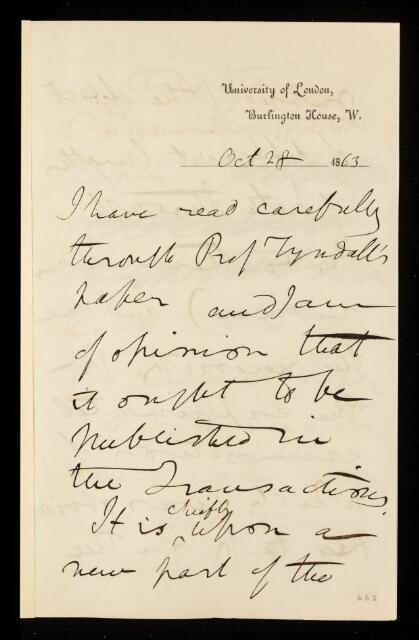 University of London,
Burlington House, W.
Oct 28 1863
I have read carefully
through Prof Tyndall's
paper and I am
of opinion that
it ought to be
published in
the Transactions.
It is chiefly upon a
new part of the